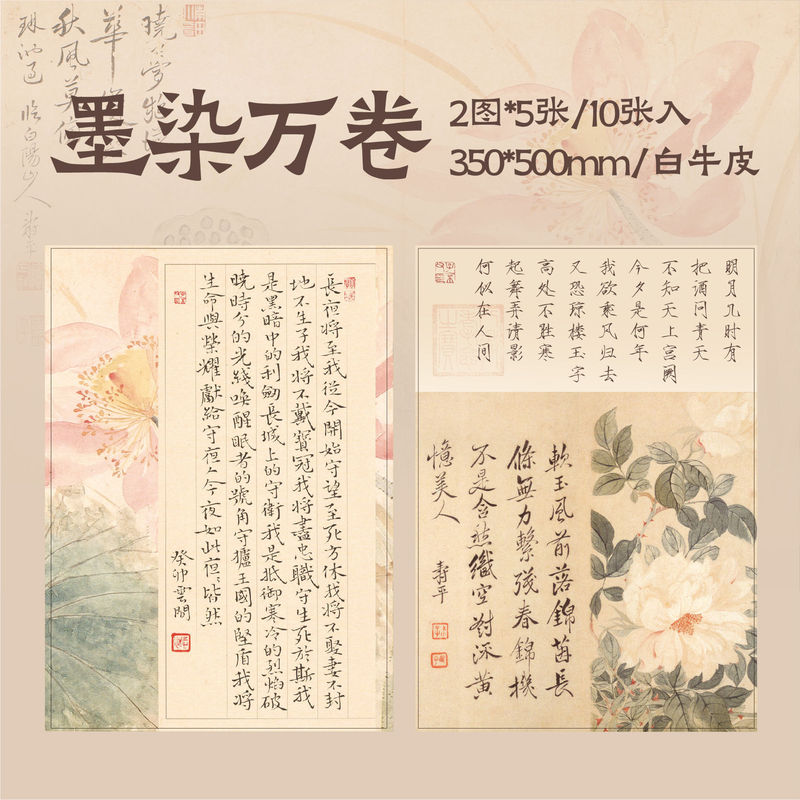 墨染万卷
2图*5张/10张入
350*500mm/白牛皮
秋風莫
臨白陽山人
壽平
長夜將至我從今開始守望至死方休我將不娶妻不封
地不生子我將不戴寶冠我將盡忠職守生死於斯我
是黑暗中的利劍長城上的守衛我是抵御寒冷的烈焰破
曉時分的光綫喚醒眠者的號角守護王國的堅盾我將
生命與榮耀獻給守夜人今夜如此夜〻皆然
癸卯雲閒
明月几时有
把酒问青天
不知天上宫阙
今夕是何年
我欲乘风归去
又恐琼楼玉宇
高处不胜寒
起舞弄清影
何似在人间
軟玉風前落錦茵長
條無力繫殘春錦機
不是含愁織空對流黃
憶美人
壽平